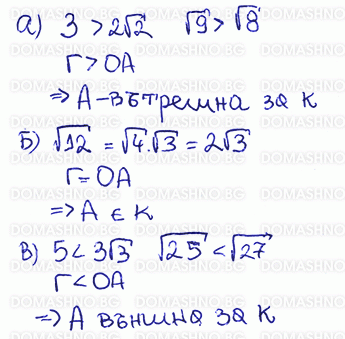 а) 3 > 2√2 √9 > √8
r > OA
=> A - вътрешна за k
Б) √12 = √4.√3 = 2√3
r = OA
=> A ∈ k
В) 5 < 3√3 √25 < √27
r < OA
=> A външна за k
DOMASHNO.BG